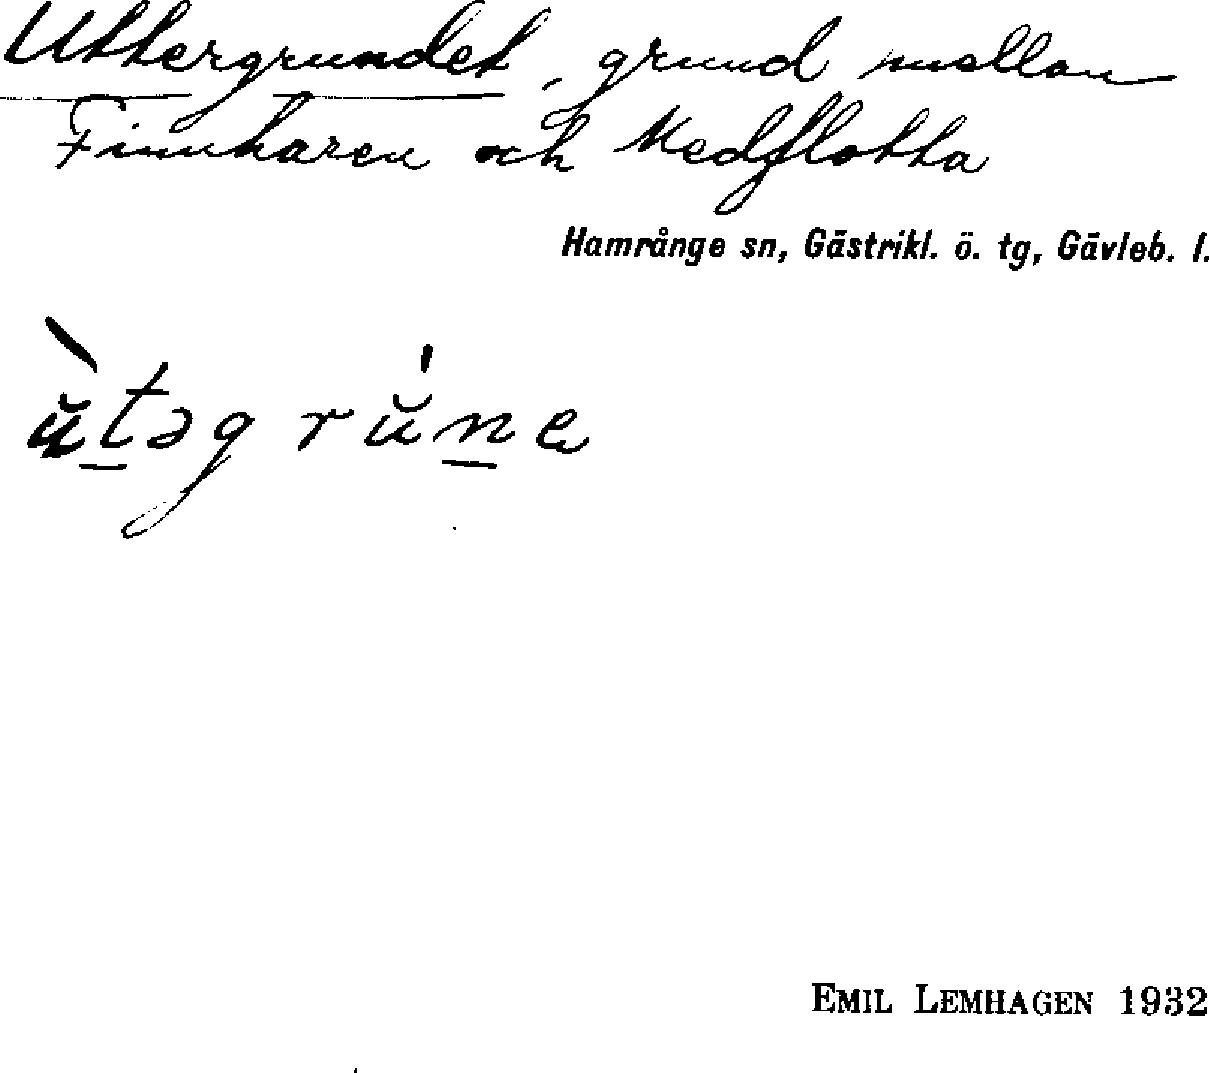 Uttergrundet, grund mellan
Finnharen och Medflotta
Hamrånge sn, Gästrikl. ö. tg, Gävleb. l.
ŭ̀t̲əg rŭ́n̲e
EMIL LEMHAGEN 1932